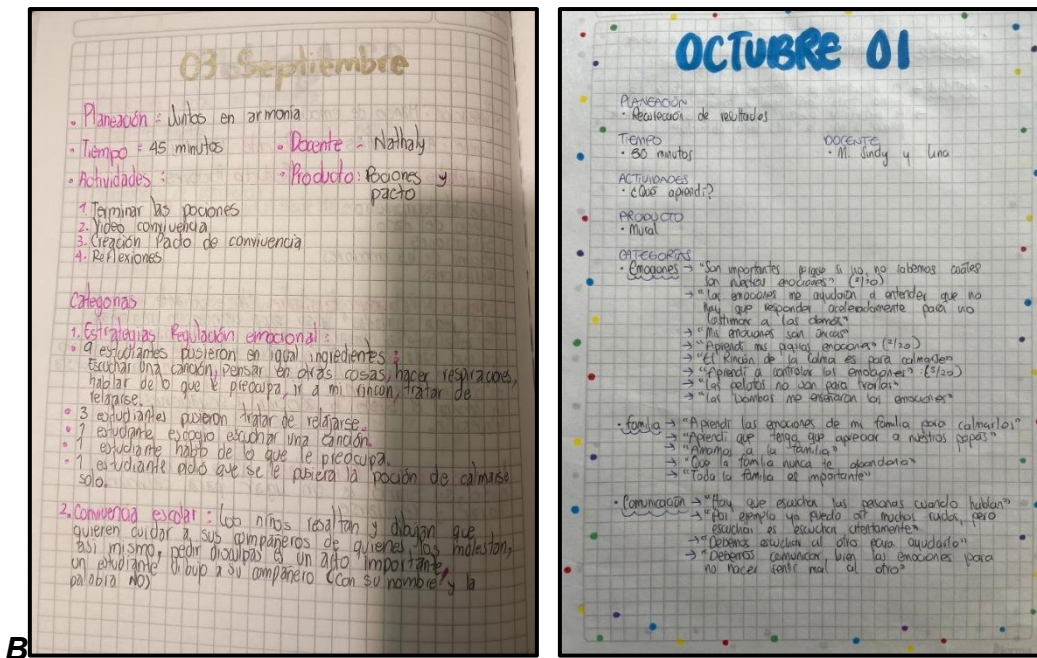 03 Septiembre
• Planeación: Juntos en armonía
• Tiempo: 45 minutos • Docente: Nathaly
• Actividades: • Producto: Pociones y
pacto
1. Terminar las pociones
2. Video convivencia
3. Creación Pacto de convivencia
4. Reflexiones
Categorías
1. Estrategias Regulación emocional:
• 9 estudiantes pusieron en igual ingredientes:
Escuchar una canción, pensar en otras cosas, hacer respiraciones,
hablar de lo que le preocupa, ir a mi rincon, tratar de
relajarse.
• 3 estudiantes pusieron tratar de relajarse.
• 1 estudiante escogio escuchar una canción.
• 1 estudiante habló de lo que le preocupa.
• 1 estudiante pidió que se le pusiera la poción de calmarse
solo.
2. Convivencia escolar: Los niños resaltan y dibujan que
quieren cuidar a sus compañeros de quienes los molestan,
así mismo, pedir disculpas es un acto importante,
un estudiante dibujo a su compañero (con su nombre y la
palabra NO)
B
OCTUBRE 01
PLANEACIÓN
• Recolección de resultados
TIEMPO DOCENTE
• 30 minutos • M. Sindy y Luna
ACTIVIDADES
• ¿Qué aprendí?
PRODUCTO
• Mural
CATEGORÍAS
• Emociones → "Son importantes porque si no, no sabemos cuáles
son nuestras emociones" (2/20)
→ "Las emociones me ayudaron a entender que no
hay que responder aceleradamente para no
lastimar a los demás"
→ "Mis emociones son únicas"
→ "Aprendí mis propias emociones" (2/20)
→ "El Rincón de la Calma es para calmarse"
→ "Aprendí a controlar las emociones" (5/20)
→ "Las pelotas no son para tirarlas"
→ "Las bombas me enseñaron las emociones"
• familia → "Aprendí las emociones de mi familia para calmarlos"
→ "Aprendí que tengo que apreciar a nuestros papás"
→ "Amamos a la familia"
→ "Que la familia nunca te abandona"
→ "Toda la familia es importante"
• Comunicación → "Hay que escuchar las personas cuando hablan"
→ "Por ejemplo yo puedo oír muchos ruidos, pero
escuchar es escuchar atentamente"
→ "Debemos escuchar al otro para ayudarlo"
→ "Debemos comunicar bien las emociones para
no hacer sentir mal al otro"